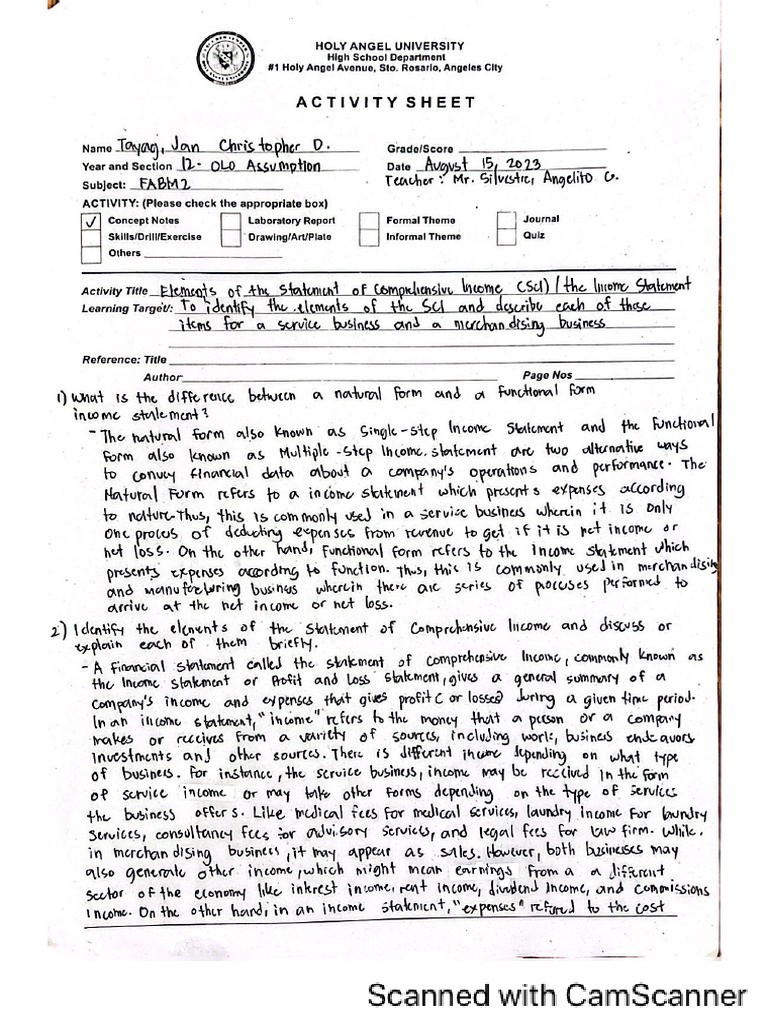 HOLY ANGEL UNIVERSITY
High School Department
#1 Holy Angel Avenue, Sto. Rosario, Angeles City
ACTIVITY SHEET
Name Tayag, Jan Christopher D. Grade/Score
Year and Section 12- OLO Assumption Date August 15, 2023
Subject: FABM2 Teacher: Mr. Silvestre, Angelito G.
ACTIVITY: (Please check the appropriate box)
✓ Concept Notes Laboratory Report Formal Theme Journal
Skills/Drill/Exercise Drawing/Art/Plate Informal Theme Quiz
Others
Activity Title Elements of the Statement of Comprehensive Income (SCI) / the Income Statement
Learning Target/: To identify the elements of the SCI and describe each of these
items for a service business and a merchandising business
Reference: Title
Author Page Nos
1) What is the difference between a natural form and a functional form
income statement?
- The natural form also known as Single-step Income Statement and the functional
form also known as Multiple-Step Income. statement are two alternative ways
to convey financial data about a company's operations and performance. The
Natural Form refers to a income statement which presents expenses according
to nature. Thus, this is commonly used in a service business wherein it is only
one process of deducting expenses from revenue to get if it is net income or
net loss. On the other hand, functional form refers to the Income Statement which
presents expenses according to function. Thus, this is commonly used in merchandising
and manufacturing business wherein there are series of processes performed to
arrive at the net income or net loss.
2) Identify the elements of the Statement of Comprehensive Income and discuss or
explain each of them briefly.
- A financial statement called the statement of comprehensive Income, commonly known as
the Income statement or Profit and Loss statement, gives a general summary of a
company's income and expenses that gives profit (or losses) during a given time period.
In an income statement, "income" refers to the money that a person or a company
makes or receives from a variety of sources, including work, business endeavors
investments and other sources. There is different income depending on what type
of business. For instance, the service business, income may be received in the form
of service income or may take other forms depending on the type of services
the business offers. Like medical fees for medical services, laundry income for laundry
services, consultancy fees for advisory services, and legal fees for law firm. While,
in merchandising business, it may appear as sales. However, both businesses may
also generate other income, which might mean earnings from a a different
sector of the economy like interest income, rent income, dividend income, and commissions
income. On the other hand, in an income statement, "expenses" refered to the cost
Scanned with CamScanner